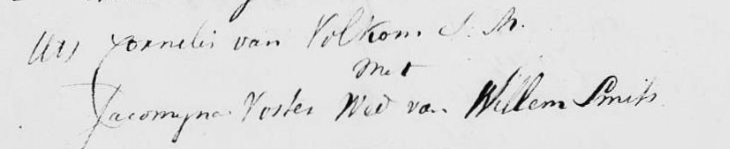 Cornelis van Volkom J. M.
Met
Jacomyna Voster Wed van Willem Smits